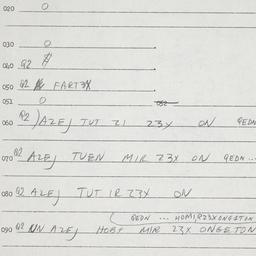 020 0
030 0
040 Q2
050 Q2 FART3X
051 0
060 Q2 ) AZEJ TUT 21 23X ON QEDN
070 Q2 AZEJ TUEN MIR 23X ON QEDN ...
080 Q2 AZEJ TUT IR 23X ON
QEDN ... HOMIR23XONGETON
090 Q2 UN AZEJ HOBT MIR 23X ONGETON